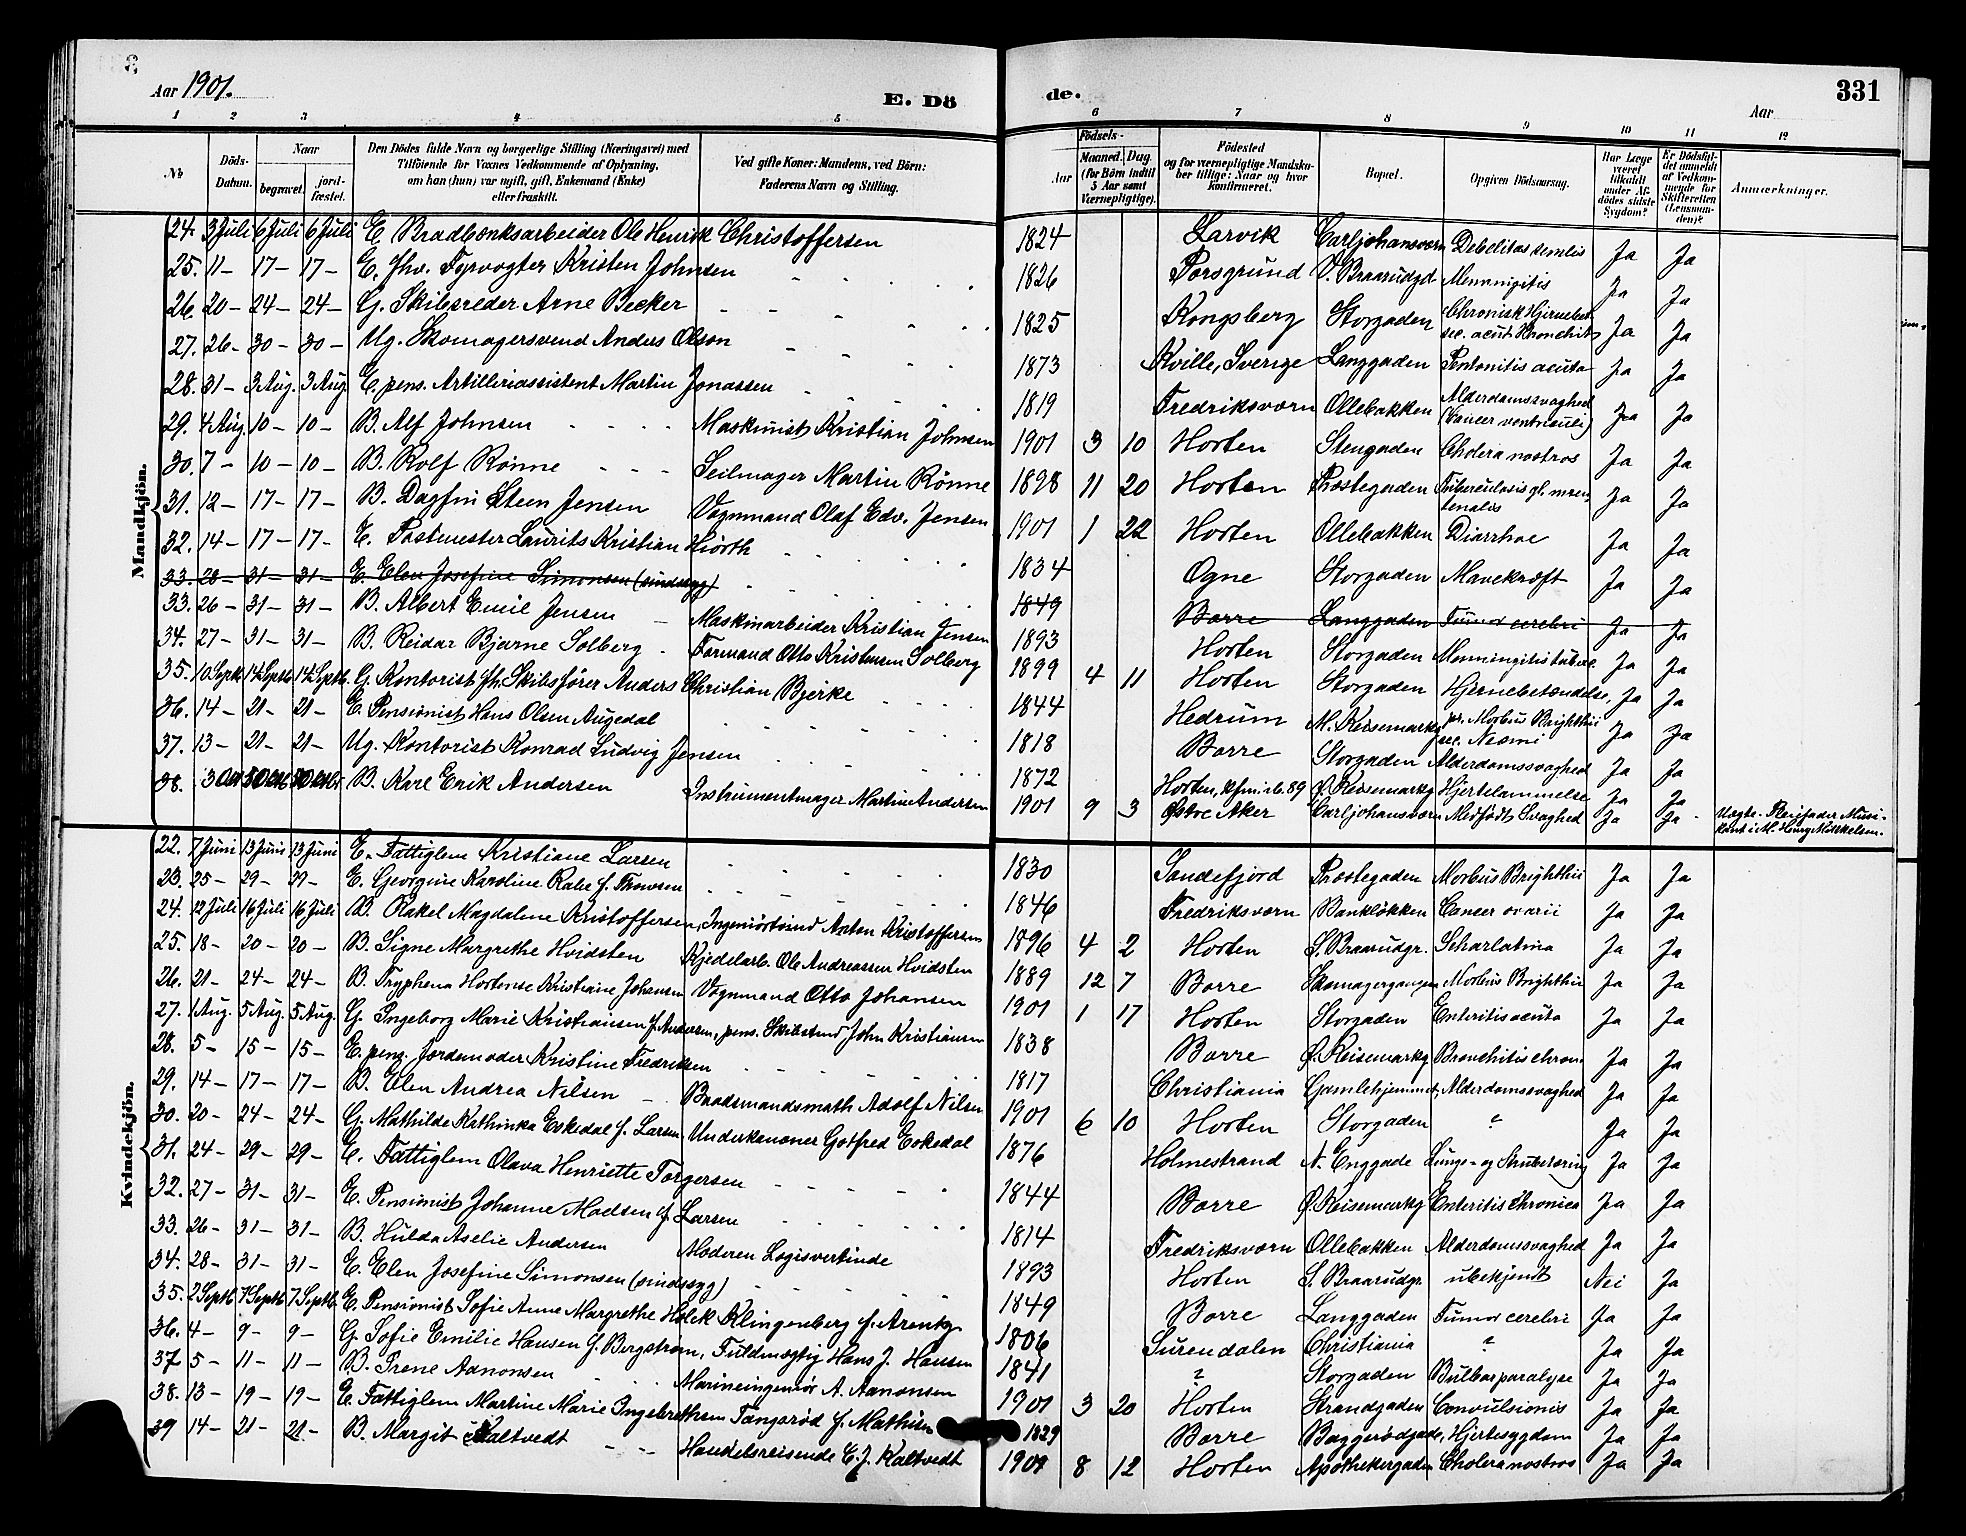 Aar 1901.
E. Dö
de.
331
Aar
1 2 3 4 5 6 7 8 9 10 11 12
No
Döds-Datum.
Naar
begravet.
jord-fæstet.
Den Dödes fulde Navn og borgerlige Stilling (Næringsvei) med
Tilföiende for Voxnes Vedkommende af Oplysning,
om han (hun) var ugift, gift, Enkemand (Enke)
eller fraskilt.
Ved gifte Koner: Mandens, ved Börn:
Faderens Navn og Stilling.
Födsels-
Aar
Maaned. Dag
(for Börn indtil
5 Aar samt
Værnepligtige).
Födested
og for værnepligtige Mandska-
ber tillige: Naar og hvor
konfirmeret.
Bopæl.
Opgiven Dödsaarsag.
Har Læge
været
tilkaldt
under Af-
dödes sidste
Sygdom?
Er Dödsfal-
det anmeldt
af Vedkom-
mende for
Skifteretten
(Lensman-
den)?
Anmærkninger.
Mandkjön.
24. 3 Juli 6 Juli 6 Juli E. Bradbænksarbeider Ole Henrik Christoffersen 1824 Larvik Carljohansværn Debilitas senilis Ja Ja
25. 11 – 17 – 17 – E. fhv. Fyrvogter Kristen Johnsen 1826 Porsgrund V. Braarudgd Menningitis Ja Ja
26. 20 – 24 – 24 – G. Skibsreder Arne Becker 1825 Kongsberg Storgaden Chronisk Hjernebet. sec. acut Bronchitis Ja Ja
27. 26 – 30 – 30 – Ug. Skomagersvend Anders Olson 1873 Kville, Sverige Langgaden Peritonitis acuta Ja Ja
28. 31 – 3 Aug. 3 Aug. E. pens. Artilleriassistent Martin Jonassen 1819 Fredriksværn Ollebakken Alderdomssvaghed (Cancer ventriculi) Ja Ja
29. 4 Aug. 10 – 10 – B. Alf Johnsen Maskinist Kristian Johnsen 1901 3 10 Horten Stengaden Cholera nostras Ja Ja
30. 7 – 10 – 10 – B. Rolf Rönne Seilmager Martin Rönne 1898 11 20 Horten Præstegaden Tuberculosis gl. mesenterialis Ja Ja
31. 12 – 17 – 17 – B. Dagfin Steen Jensen Vognmand Olaf Edv. Jensen 1901 1 22 Horten Ollebakken Diarrhoe Ja Ja
32. 14 – 17 – 17 – E. Postmester Laurits Kristian Hiorth 1834 Ogne Storgaden Mavekræft Ja Ja
33. 28 – 31 – 31 – E. Elen Josefine Simonsen (sindssyg) 1849 Borre Langgaden Tumor cerebri Ja Ja
33. 26 – 31 – 31 – B. Albert Emil Jensen Maskinarbeider Kristian Jensen 1893 Horten Storgaden Menningitis tuberc. Ja Ja
34. 27 – 31 – 31 – B. Reidar Bjarne Solberg Formand Otto Kristensen Solberg 1899 4 11 Horten Storgaden Hjernebetændelse, Ja Ja
35. 10 Septb. 14 Septb. 14 Septb. G. Kontorist fh. Skibsfører Anders Christian Bjerke 1844 Hedrum N. Keisemarkg pr. Morbus Brighthii sec. Uræmi Ja Ja
36. 14 – 21 – 21 – E. Pensionist Hans Olsen Augedal 1818 Borre Storgaden Alderdomssvaghed Ja Ja
37. 13 – 21 – 21 – Ug. Kontorist Konrad Ludvig Jensen 1872 Horten, kfm. ib. 89 Ø. Keisemarkg Hjertelammelse Ja Ja
38. 3 Okt 5 Oktb 5 Oktbr B. Karl Erik Andersen Instrumentmager Martin Andersen 1901 9 3 Østre Aker Carljohansværn Medfødt Svaghed Ja Ja Uægte. Pleiefader
Kvindekjön.
22. 7 Juni 13 Juni 13 Juni E. Fattiglem Kristiane Larsen 1830 Sandefjord Præstegaden Morbus Brighthii Ja Ja
23. 25 – 29 – 29 – E. Georgine Karoline Rabe f. Thowsen 1846 Fredriksværn Bankløkken Cancer ovarii Ja Ja
24. 12 Juli 16 Juli 16 Juli B. Rakel Magdalene Kristoffersen, Ingeniörtömd Anton Kristoffersen 1896 4 2 Horten S. Braarudgr. Scharlatina Ja Ja
25. 18 – 20 – 20 – B. Signe Margrethe Hvidsten Kjedelarb. Ole Andreassen Hvidsten 1889 12 7 Borre Skomagergangen Morbus Brighthii Ja Ja
26. 21 – 24 – 24 – B. Tryphena Hortense Kristiane Johansen Vognmand Otto Johansen 1901 1 17 Horten Storgaden Enteritis acuta Ja Ja
27. 1 Aug. 5 Aug. 5 Aug. G. Ingeborg Marie Kristiansen f. Andersen, pens. Skibstømd John Kristiansen 1838 Borre Ø. Keisemarkg Bronchitis chron Ja Ja
28. 5 – 15 – 15 – E. pens. Jordemoder Kristine Fredriksen 1817 Christiania Gamlehjemmet, Alderdomssvaghed Ja Ja
29. 14 – 17 – 17 – B. Elen Andrea Nilsen Baadsmandsmath Adolf Nilsen 1901 6 10 Horten Storgaden ? Ja Ja
30. 20 – 24 – 24 – G. Mathilde Kathinka Eskedal f. Larsen, Underkanoner Gotfred Eskedal 1876 Holmestrand N. Enggade Lunge- og Strubetæring Ja Ja
31. 24 – 29 – 29 – E. Fattiglem Olava Henriette Torgersen 1844 Borre Ø. Keisemarkg Enteritis chronica Ja Ja
32. 27 – 31 – 31 – E. Pensionist Johanne Madsen f. Larsen 1814 Fredriksværn Ollebakken Alderdomssvaghed Ja Ja
33. 26 – 31 – 31 – B. Hulda Aselie Andersen Moderen Logisvertinde 1893 Horten S. Braarudgr ubekjendt Nei Ja
34. 28 – 31 – 31 – E. Elen Josefine Simonsen (sindssyg) 1849 Borre Langgaden Tumor cerebri Ja Ja
35. 2 Septb. 7 Septb. 7 Septb. E. Pensionist Sofie Anne Margrethe Holck Klingenberg f. Arentz 1806 Surendalen Christiania ? Ja Ja
36. 4 – 9 – 9 – G. Sofie Emilie Hansen f. Bergstrøm, Fuldmægtig Hans J. Hansen 1841 ? Storgaden Bulbærparalyse Ja Ja
37 5 – 11 – 11 – B. Irene Aanonsen Marineingeniør A. Aanonsen 1901 3 20 Horten Strandgaden Convulsionis Ja Ja
38. 13 – 19 – 19 – E. Fattiglem Martine Marie Ingebrethsen Fangerød f. Mathisen 1829 Borre Baggerødgade, Hjertesygdom Ja Ja
39 14 – 21 – 21 – B. Margit Kaltvedt Handelsreisende E. J. Kaltvedt 1901 8 12 Horten Apothekergaden Cholera nostras Ja Ja